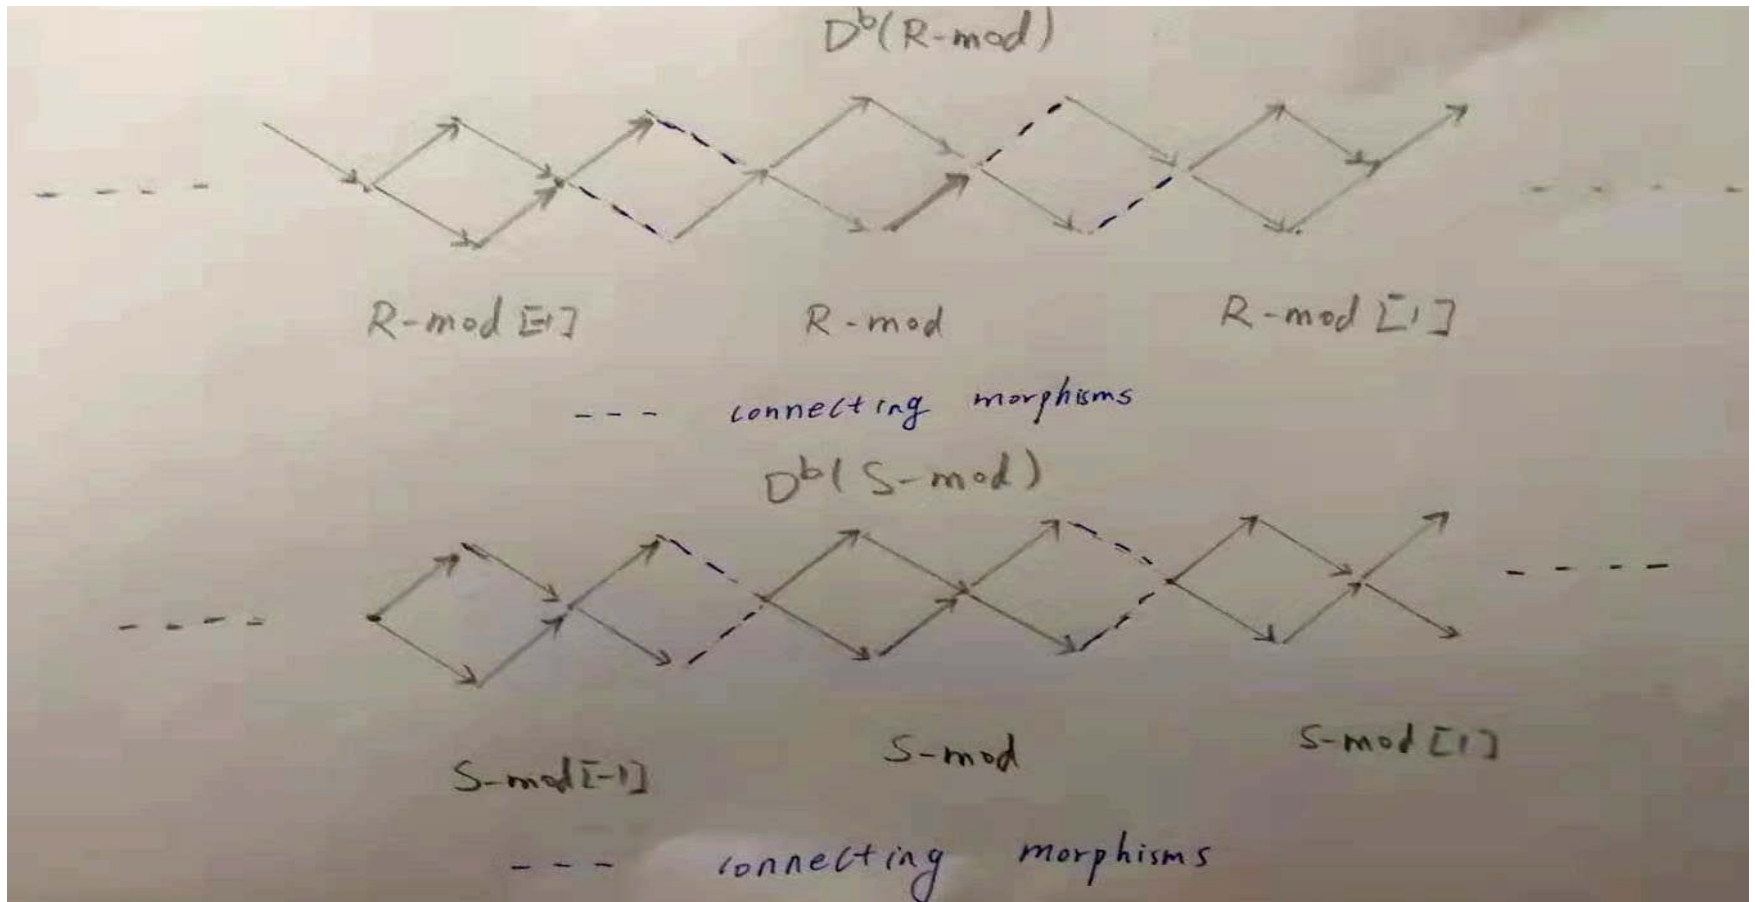 D^b(R-mod)
R-mod [-1] R-mod R-mod [1]
--- connecting morphisms
D^b(S-mod)
S-mod[-1] S-mod S-mod [1]
--- connecting morphisms